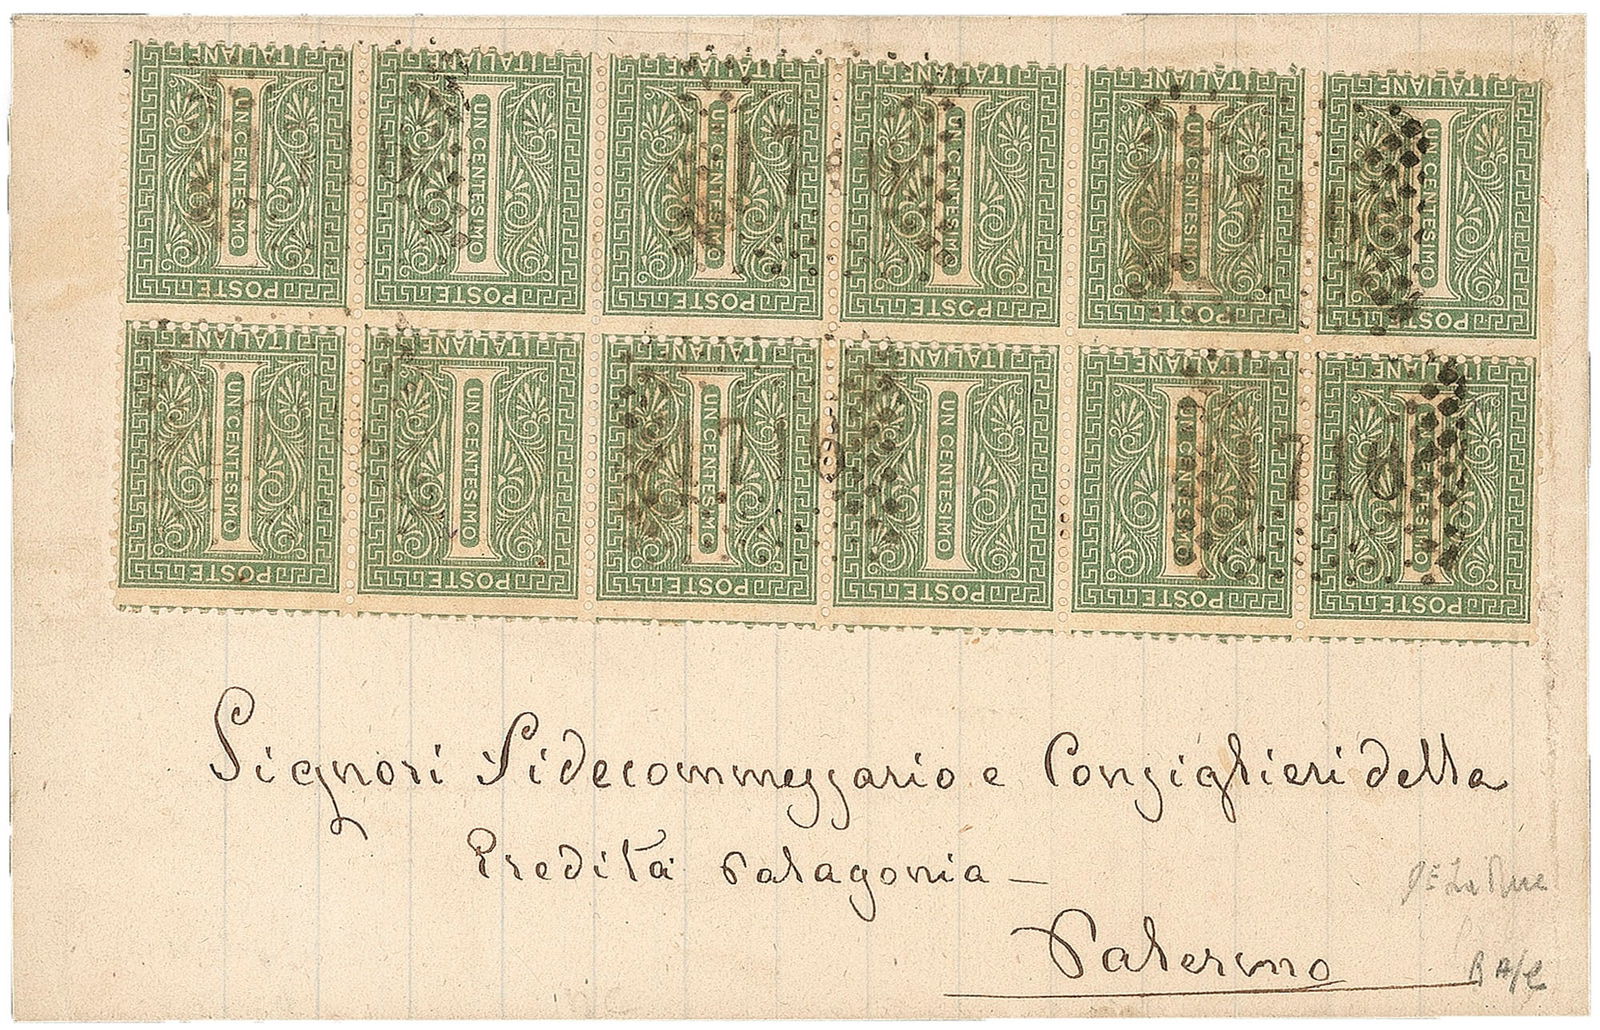 POSTE ITALIANE POSTE ITALIANE POSTE ITALIANE POSTE ITALIANE POSTE ITALIANE POSTE ITALIANE
UN CENTESIMO UN CENTESIMO UN CENTESIMO UN CENTESIMO UN CENTESIMO UN CENTESIMO
POSTE ITALIANE POSTE ITALIANE POSTE ITALIANE POSTE ITALIANE POSTE ITALIANE POSTE ITALIANE
UN CENTESIMO UN CENTESIMO UN CENTESIMO UN CENTESIMO UN CENTESIMO UN CENTESIMO
1716 1716
Signori Fidecommessario e Consiglieri della
Eredità Palagonia —
Palermo
De La Rue